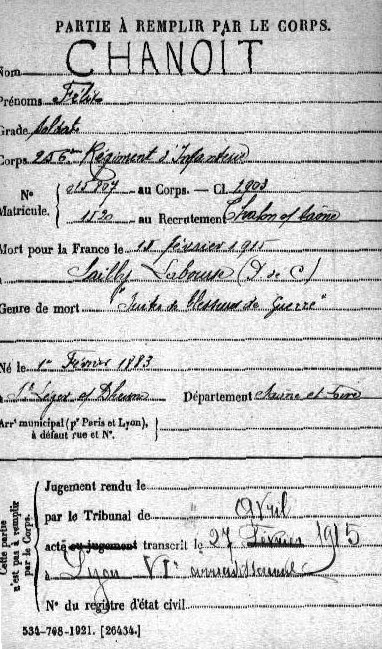 PARTIE À REMPLIR PAR LE CORPS.
Nom CHANOIT
Prénoms Félix
Grade soldat
Corps 256e Régiment d'Infanterie
N° Matricule. { 015897 au Corps. — Cl. 1903
1120 au Recrutement Chalon s/ Saône
Mort pour la France le 12 février 1915
à Sailly Labourse (P de C)
Genre de mort "Suites de blessures de Guerre"
Né le 1er Février 1883
à St Léger s/ Dheune Département Saône et Loire
Arrt municipal (pr Paris et Lyon), à défaut rue et N°.
Cette partie n'est pas à remplir par le Corps.
Jugement rendu le
par le Tribunal de
acte ou jugement transcrit le 27 Février Avril 1915
à Lyon VIe arrondissement
N° du registre d'état civil
534-708-1921. [26434.]